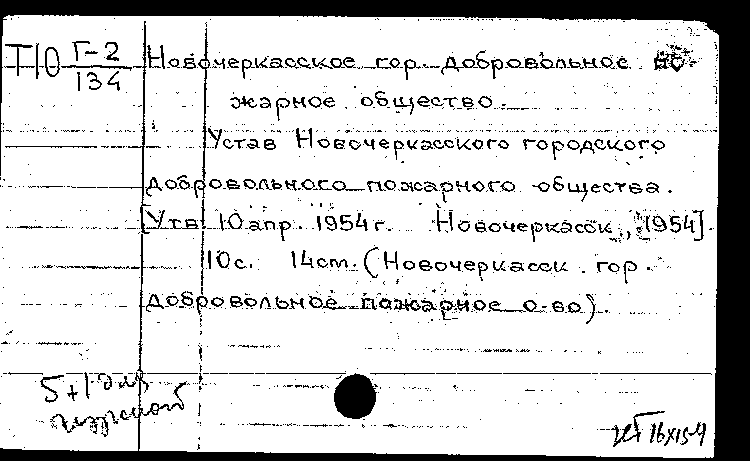 Т10 Г-2
134
Новочеркасское гор. добровольное по-
жарное общество.
Устав Новочеркасского городского
добровольного пожарного общества.
[Утв. 10 апр. 1954 г. Новочеркасск, 1954].
10 с. 14 см. (Новочеркасск. гор.
добровольное пожарное о-во).
5+1 экз